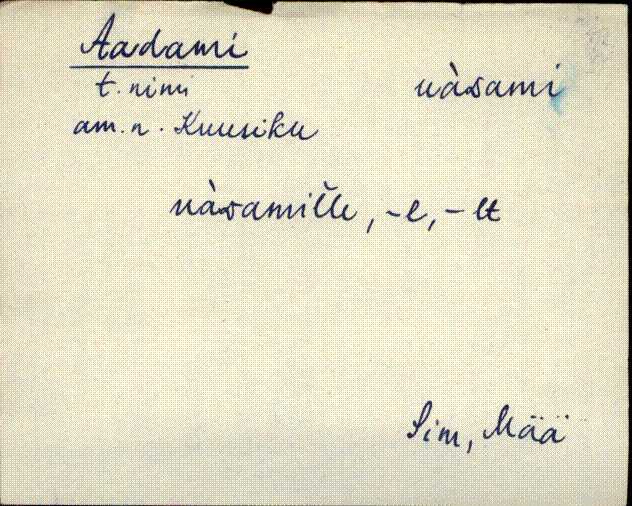 Aadami
t. nimi uàdami
am. n. Kuusiku
uàdamille, -l, -lt
Sim, Mää